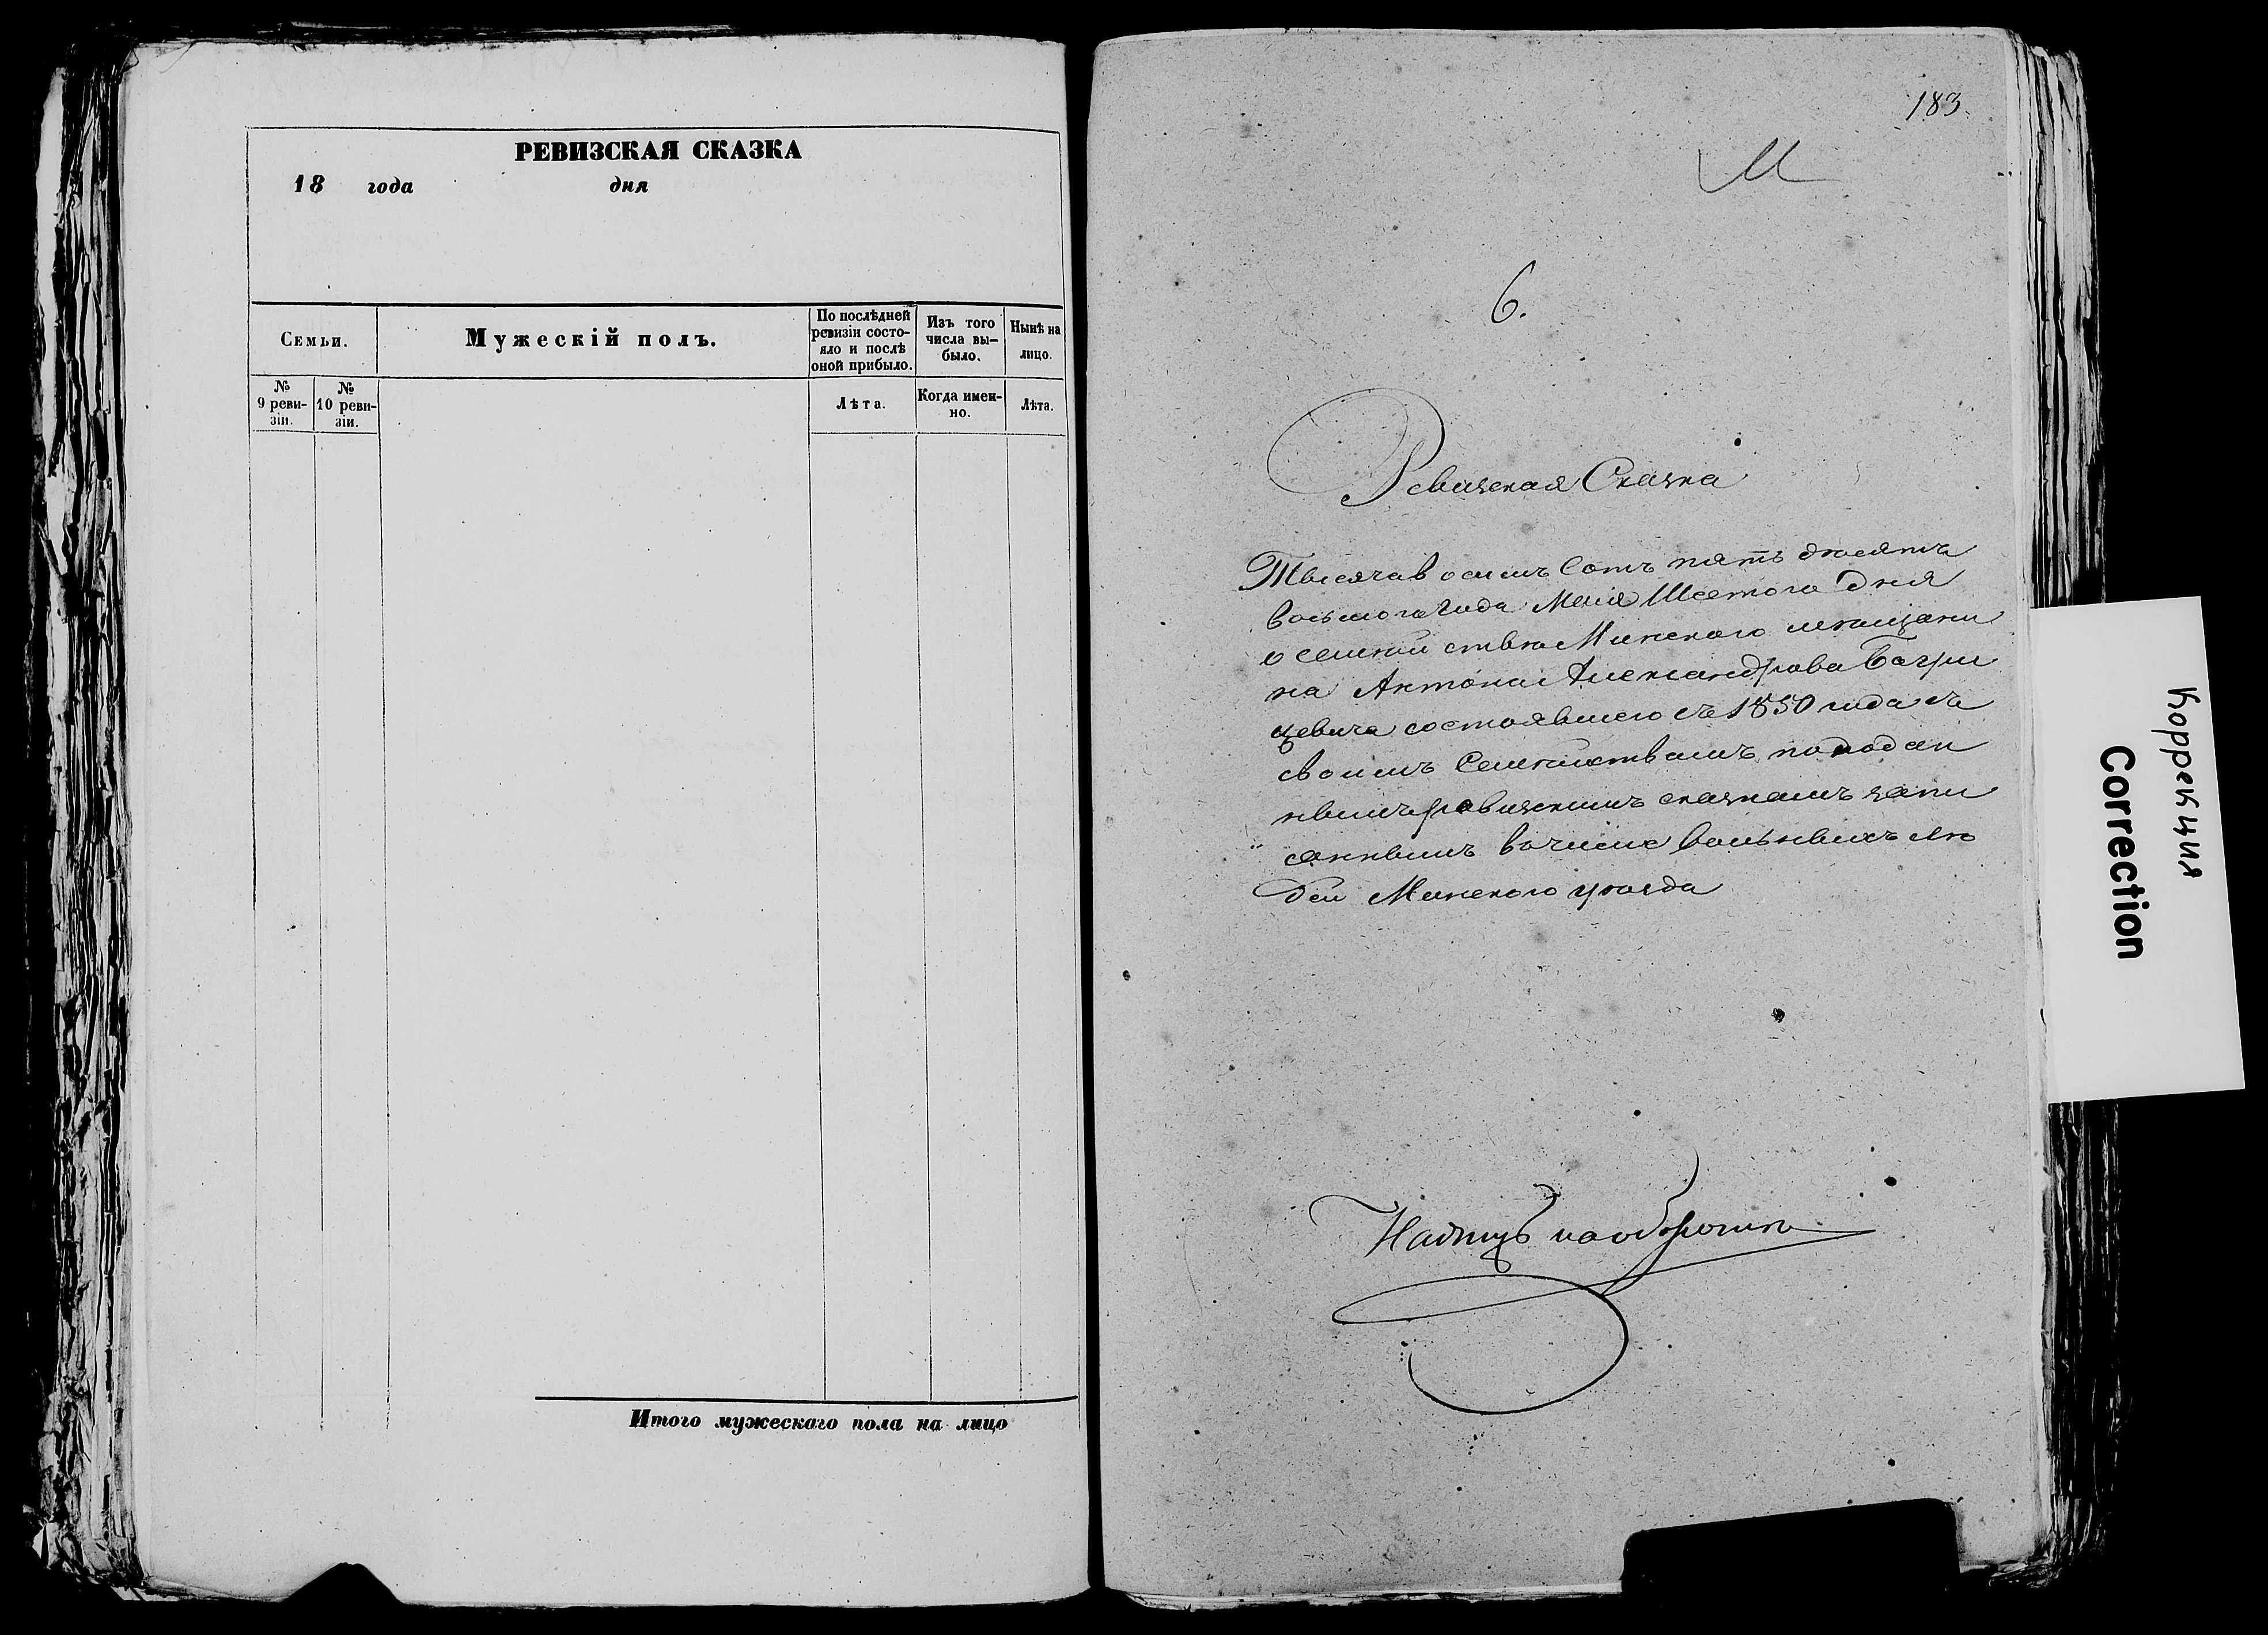 РЕВИЗСКАЯ СКАЗКА
18 года дня
Семьи.
Мужескій полъ.
По послѣдней ревизіи состо-
яло и послѣ
оной прибыло.
Изъ того
числа вы-
было.
Нынѣ на
лицо.
№
9 реви-
зіи.
№
10 реви-
зіи.
Лѣта.
Когда имен-
но.
Лѣта.
Итого мужескаго пола на лицо
183
М
6.
Ревизская Сказка
Тысяча восемъ Сотъ пять десятъ
восьмого года Мая Шестого Дня
о семей ствѣ Минского мещани
на Антона Александрова Багри
цевича состоявшего съ 1850 года съ
своимъ Семействамъ по подан
нымъ ревизскимъ сказкамъ запи
санныхъ в числе вольныхъ лю
дей Минского уезда
на обороте
Коррекция
Correction